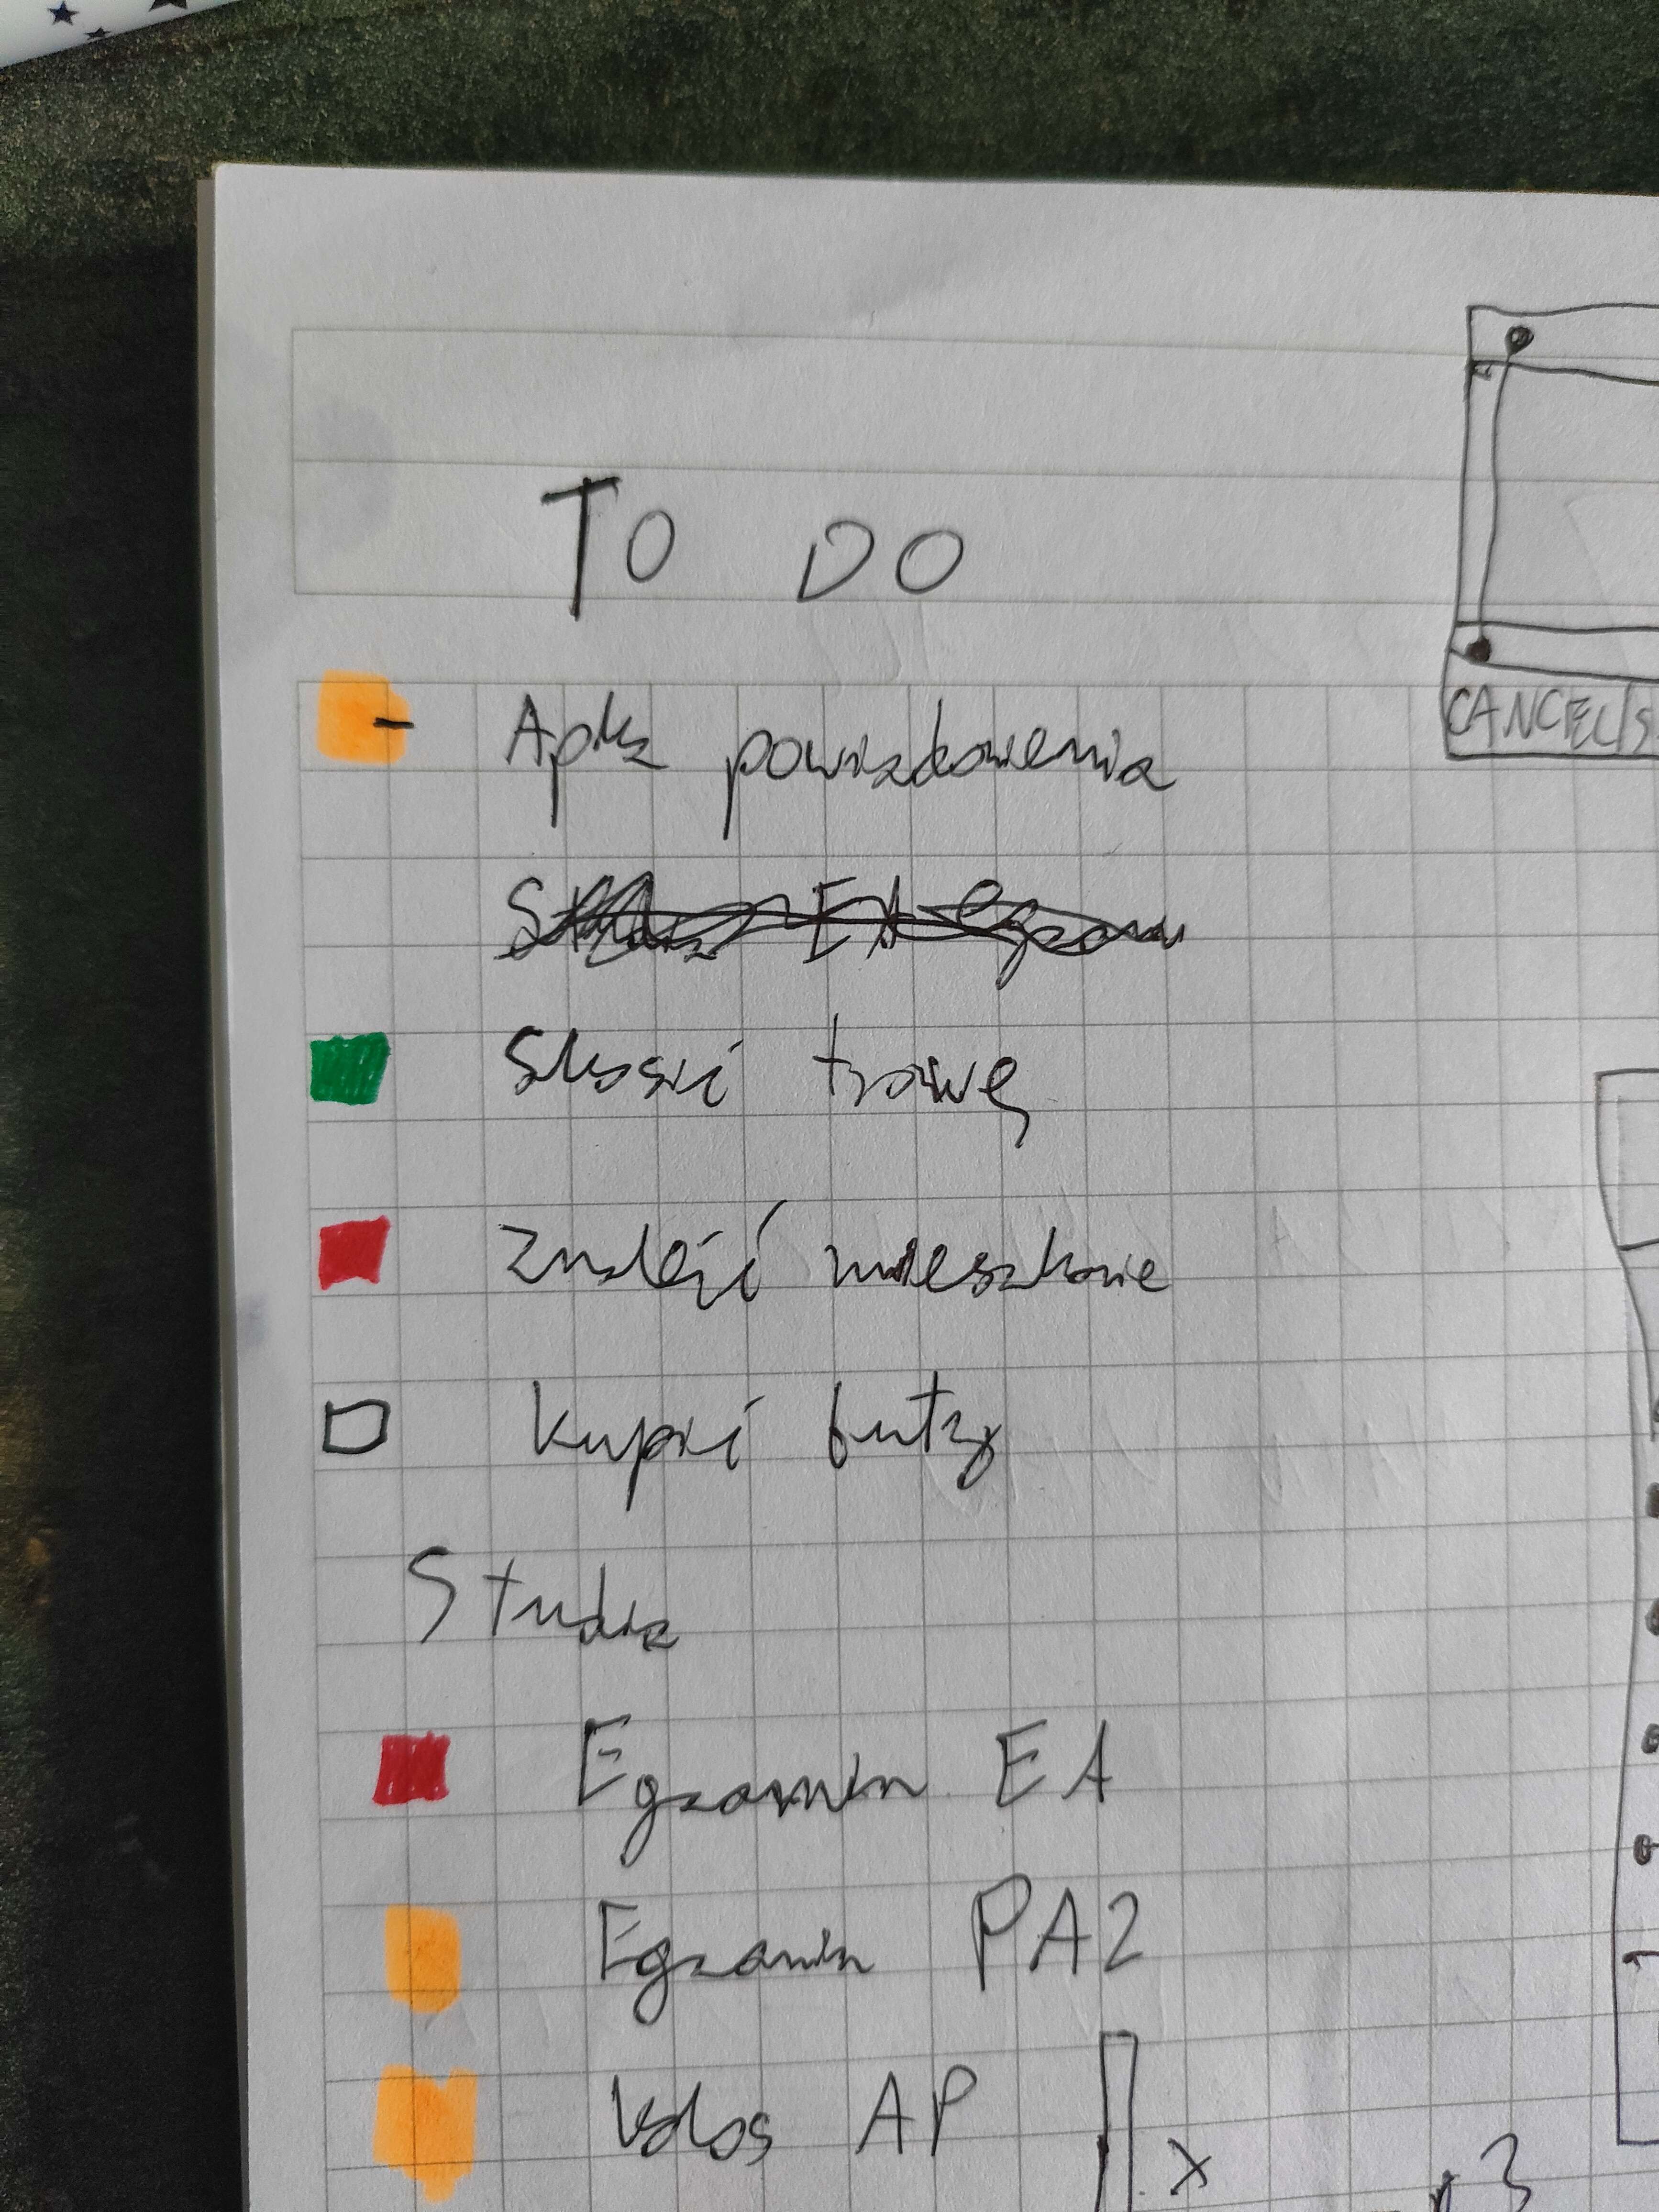 TO DO
Apka powiadomienia
EA egzam
Skosić trawę
Znaleźć mieszkanie
Kupić buty
Studia
Egzamin EA
Egzamin PA2
Kolos AP
CANCEL/S
x
3